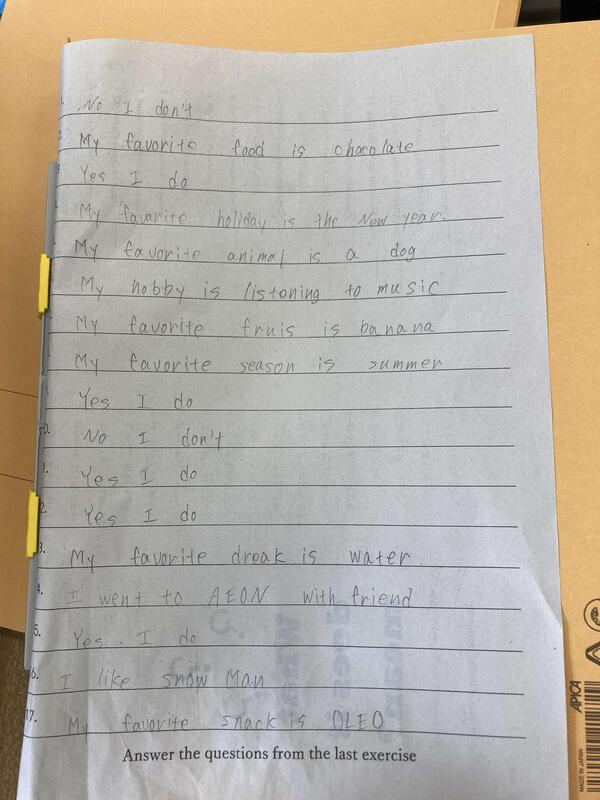 No I don't
2 My favorite food is chocolate
Yes I do
My favarite holiday is the New year.
My favorite animal is a dog
My hobby is listoning to music
My favorite fruis is banana
My favorite season is summer
Yes I do
0. No I don't
1. Yes I do
2. Yes I do
3. My favorite dreak is water
4. I went to AEON with friend
5. Yes. I do
6. I like snow Man
17. My favorite snack is OLEO
Answer the questions from the last exercise
APICA
MADE IN JAPAN